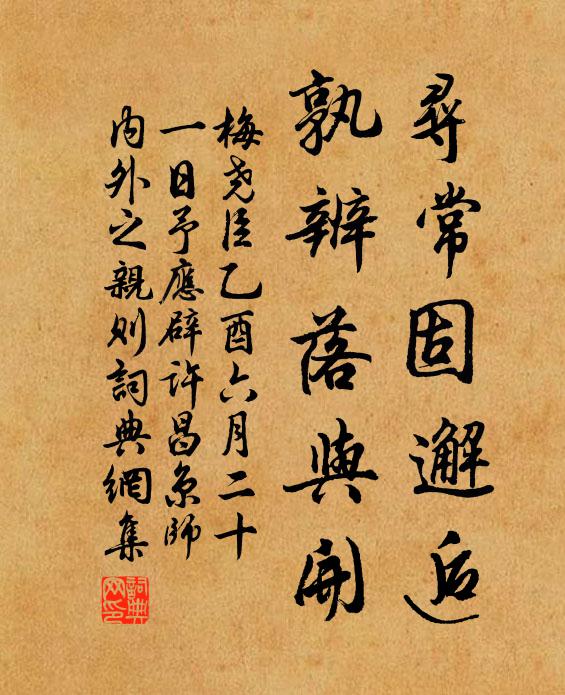 尋常固邂逅
孰辨落與開
梅堯臣乙酉六月二十
一日予應辟許昌京師
內外之親則詞典網集
詞典網印